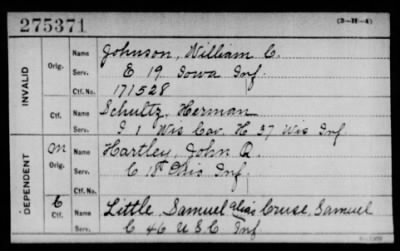 275371
(3-H-4)
INVALID
Orig. Name Johnson, William C.
Serv. E 19 Iowa Inf.
Ctf. No. 171528
Ctf. Name Schultz, Herman
Serv. I 1 Wis Cav. H 37 Wis Inf.
DEPENDENT
M Orig. Name Hartley, John Q.
Serv. C Inf.
Ctf. No.
C Ctf. Name Little, Samuel alias Cruse, Samuel
Serv. C 46 U S C Inf